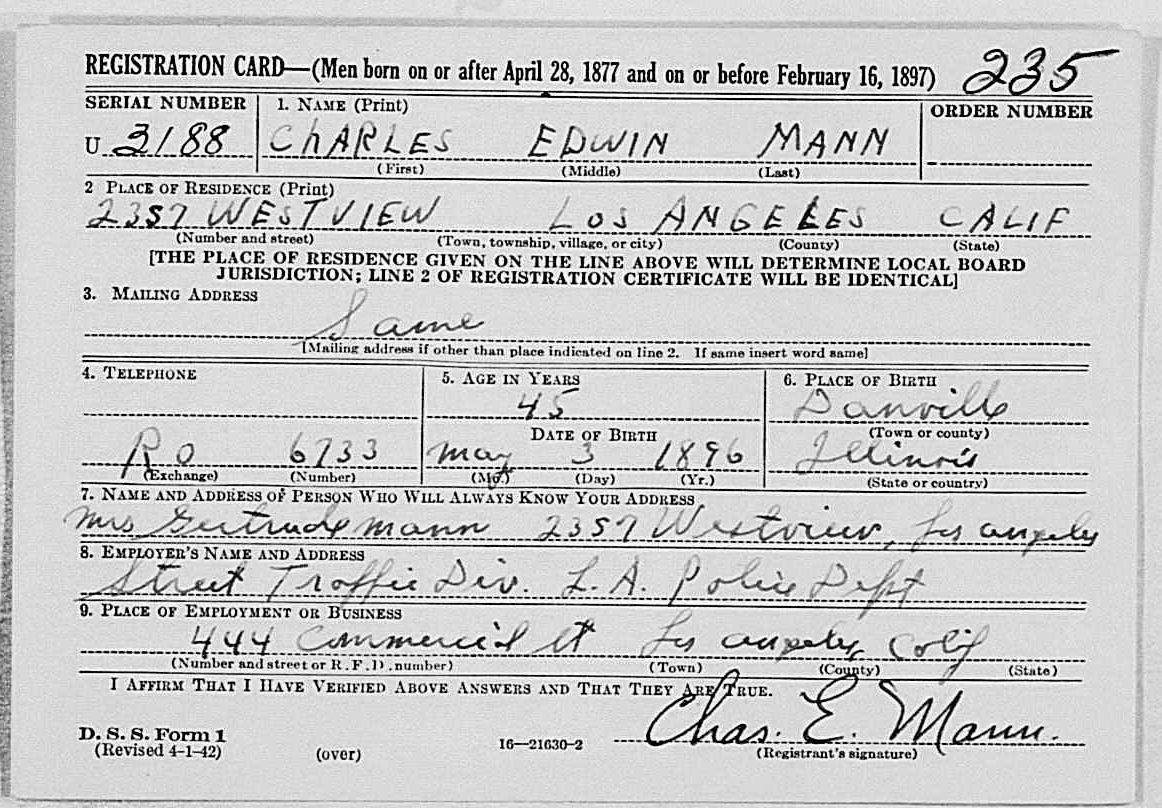 REGISTRATION CARD—(Men born on or after April 28, 1877 and on or before February 16, 1897) 235
SERIAL NUMBER 1. NAME (Print) ORDER NUMBER
U 3188 CHARLES EDWIN MANN
(First) (Middle) (Last)
2 PLACE OF RESIDENCE (Print)
2357 WESTVIEW LOS ANGELES CALIF
(Number and street) (Town, township, village, or city) (County) (State)
[THE PLACE OF RESIDENCE GIVEN ON THE LINE ABOVE WILL DETERMINE LOCAL BOARD
JURISDICTION; LINE 2 OF REGISTRATION CERTIFICATE WILL BE IDENTICAL]
3. MAILING ADDRESS
Same
[Mailing address if other than place indicated on line 2. If same insert word same]
4. TELEPHONE 5. AGE IN YEARS 6. PLACE OF BIRTH
45 Danville
DATE OF BIRTH (Town or county)
RO 6733 May 3 1896 Illinois
(Exchange) (Number) (Mo.) (Day) (Yr.) (State or country)
7. NAME AND ADDRESS OF PERSON WHO WILL ALWAYS KNOW YOUR ADDRESS
Mrs Gertrude Mann 2357 Westview, Los Angeles
8. EMPLOYER'S NAME AND ADDRESS
Street Traffic Div. L.A. Police Dept
9. PLACE OF EMPLOYMENT OR BUSINESS
444 Commercial St Los Angeles, Calif
(Number and street or R. F. D. number) (Town) (County) (State)
I AFFIRM THAT I HAVE VERIFIED ABOVE ANSWERS AND THAT THEY ARE TRUE.
Chas. E. Mann.
D. S. S. Form 1
(Revised 4-1-42) (over) 16—21630-2 (Registrant's signature)